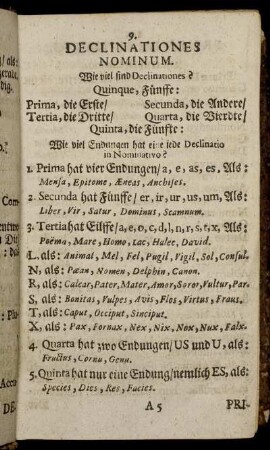 9.
DECLINATIONES
NOMINUM.
Wie viel sind Declinationes?
Quinque, Fünffe:
Prima, die Erste/ Secunda, die Andere/
Tertia, die Dritte/ Quarta, die Vierdte/
Quinta, die Fünfte:
Wie viel Endungen hat eine jede Declinatio
in Nominativo?
1. Prima hat vier Endungen/ a, e, as, es. Als:
Mensa, Epitome, Æneas, Anchises.
2. Secunda hat Fünffe/ er, ir, ur, us, um, Als:
Liber, Vir, Satur, Dominus, Scamnum.
3. Tertia hat Eilffe/ a, e, o, c, d, l, n, r, s, t, x, Als:
Poëma, Mare, Homo, Lac, Halec, David.
L. als: Animal, Mel, Fel, Pugil, Vigil, Sol, Consul.
N, als: Pæan, Nomen, Delphin, Canon.
R, als: Calcar, Pater, Mater, Amor, Soror, Vultur, Par.
S, als: Bonitas, Vulpes, Avis, Flos, Virtus, Fraus.
T, als: Caput, Occiput, Sinciput.
X, als: Pax, Fornax, Nex, Nix, Nox, Nux, Falx.
4. Quarta hat zwo Endungen/ US und U, als:
Fructus, Cornu, Genu.
5. Quinta hat nur eine Endung/ nemlich ES, als:
Species, Dies, Res, Facies.
A 5 PRI-